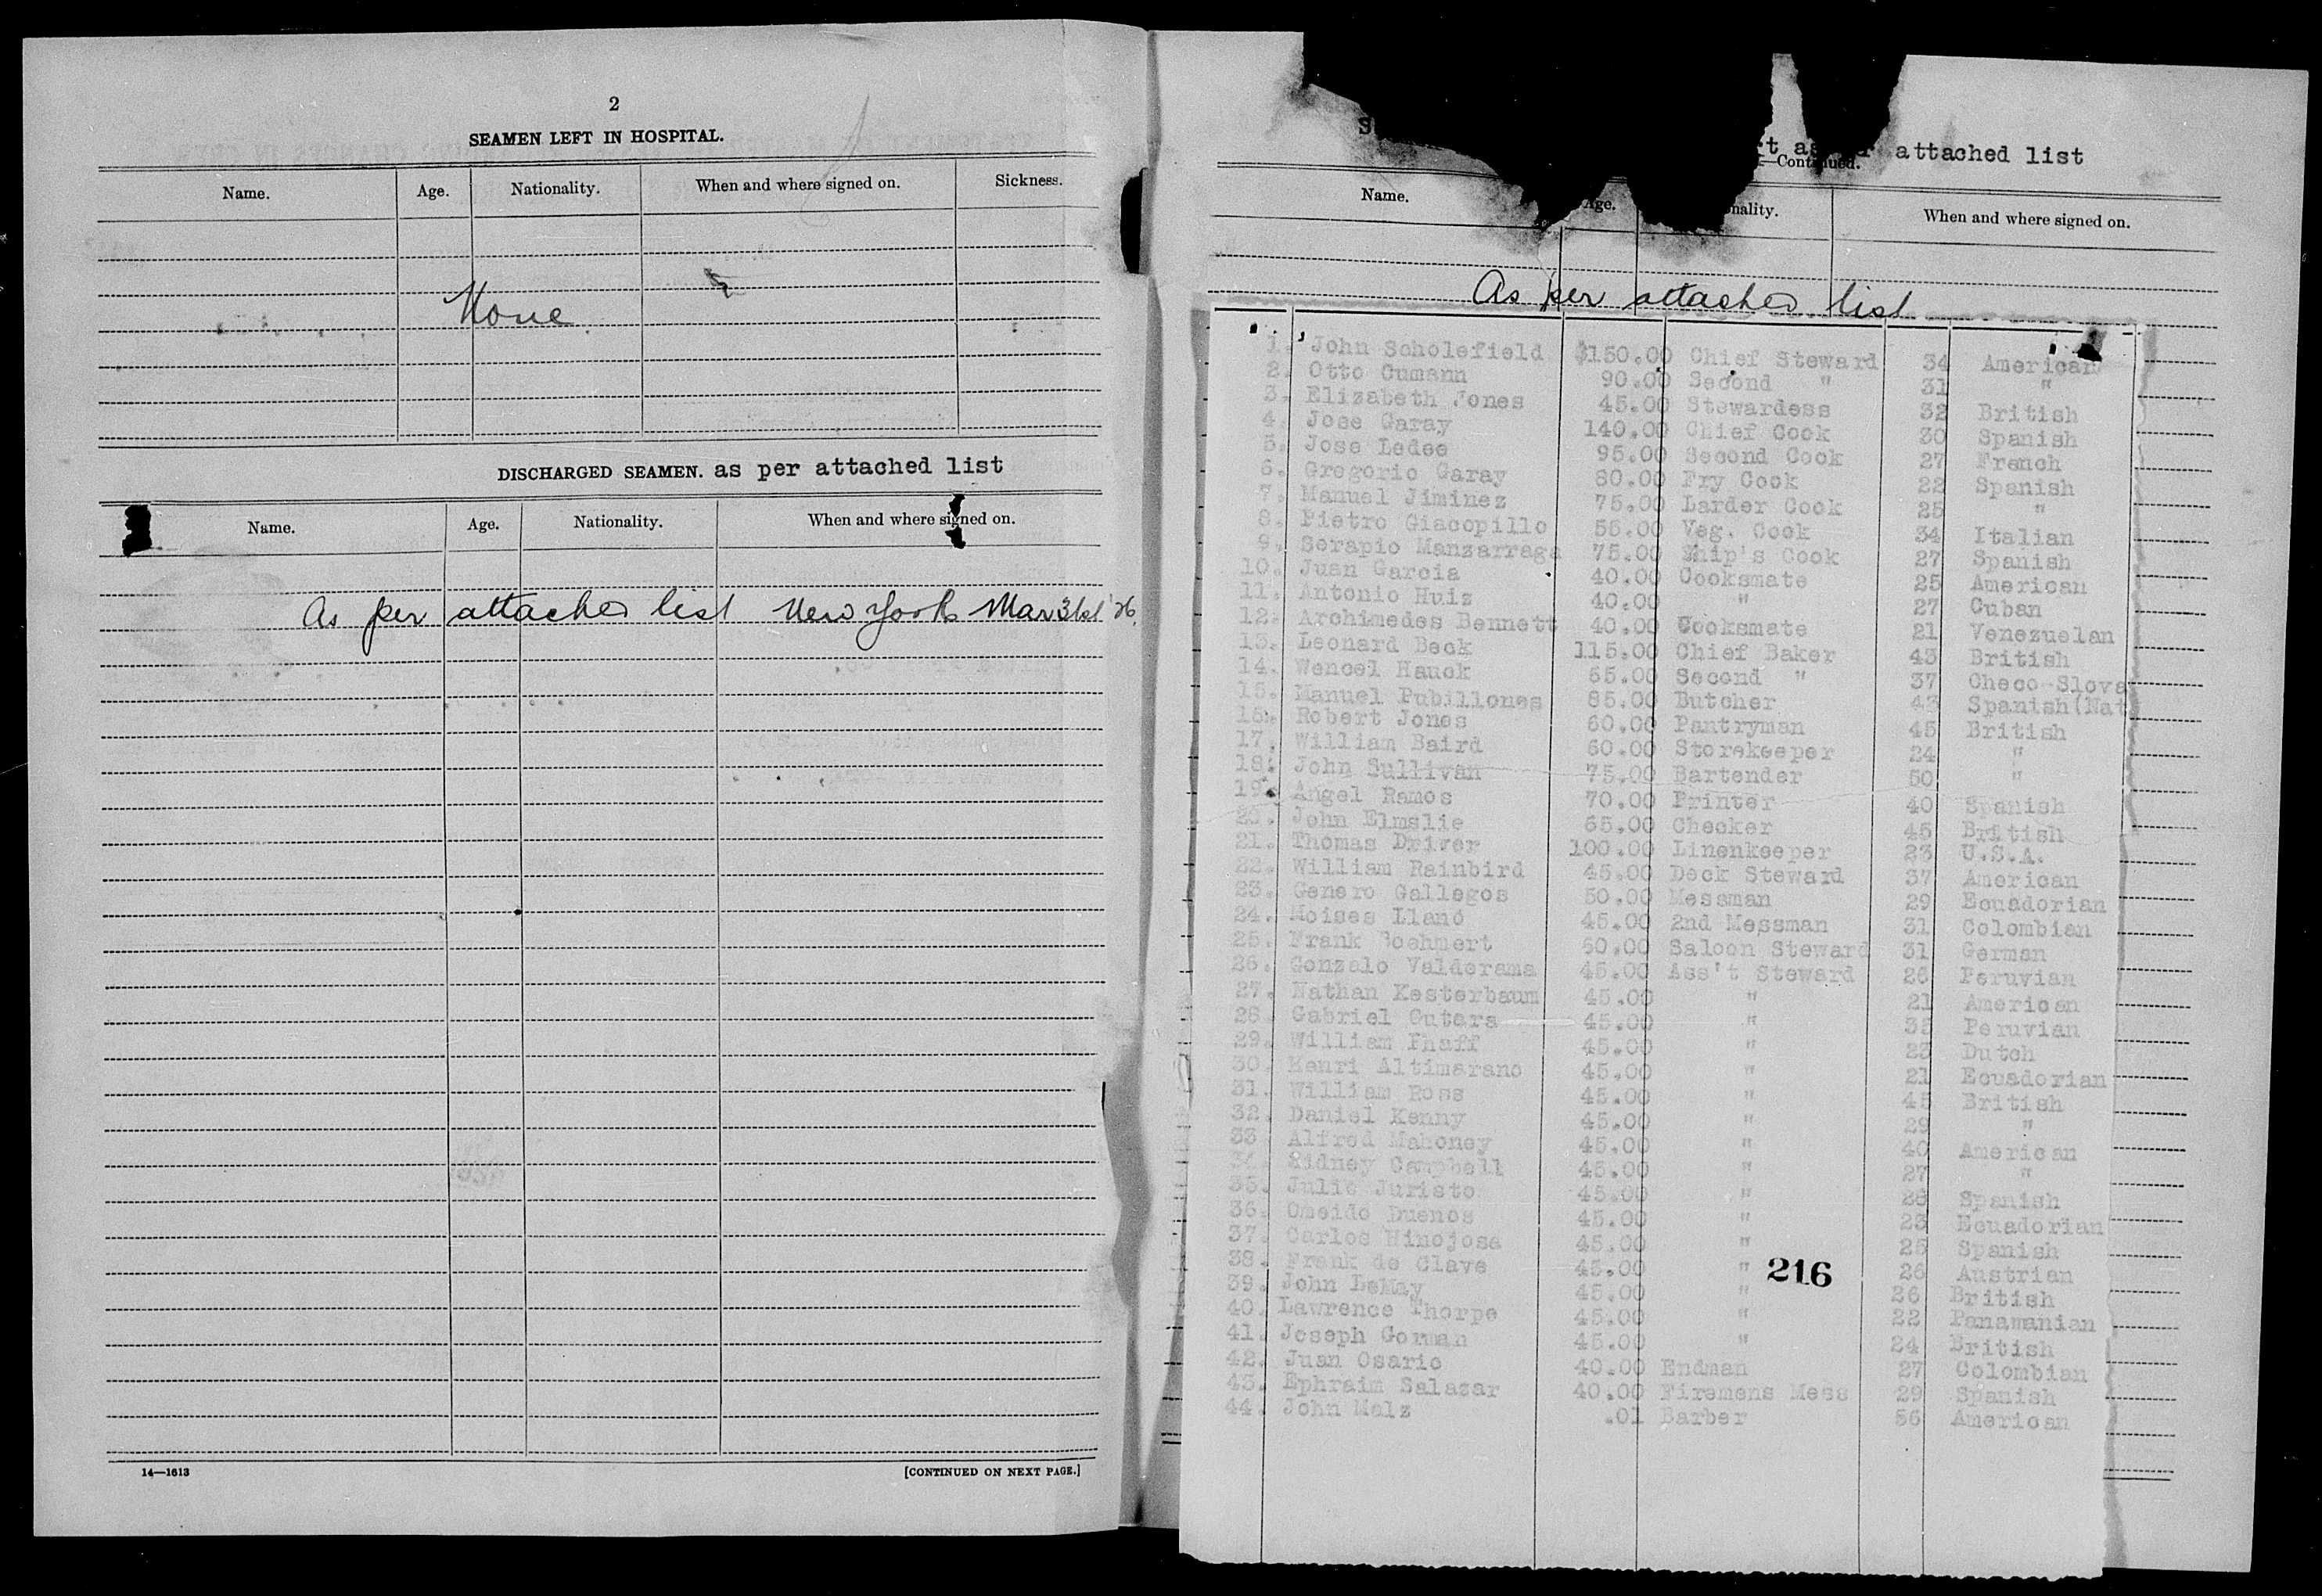 2
SEAMEN LEFT IN HOSPITAL.
Name. Age. Nationality. When and where signed on. Sickness.
None
DISCHARGED SEAMEN. as per attached list
Name. Age. Nationality. When and where signed on.
As per attached list New York Mar 31st '26.
14—1613
[CONTINUED ON NEXT PAGE.]
attached list
—Continued.
Name. Age. When and where signed on.
As per attached list
1. John Scholefield $150.00 Chief Steward 34 American
2. Otto Gumann 90.00 Second " 31 "
3. Elizabeth Jones 45.00 Stewardess 32 British
4. Jose Garay 140.00 Chief Cook 30 Spanish
5. Jose Ledee 95.00 Second Cook 27 French
6. Gregorio Garay 80.00 Fry Cook 22 Spanish
7. Manuel Jiminez 75.00 Larder Cook 25 "
8. Pietro Giacopillo 55.00 Veg. Cook 34 Italian
9. Serapio Manzarraga 75.00 Ship's Cook 27 Spanish
10. Juan Garcia 40.00 Cooksmate 25 American
11. Antonio Huiz 40.00 " 27 Cuban
12. Archimedes Bennett 40.00 Cooksmate 21 Venezuelan
13. Leonard Beck 115.00 Chief Baker 43 British
14. Wencel Hauck 65.00 Second " 37 Checo-Slova
15. Manuel Pubillones 85.00 Butcher 43 Spanish(Nat
16. Robert Jones 60.00 Pantryman 45 British
17. William Baird 60.00 Storekeeper 24 "
18. John Sullivan 75.00 Bartender 50 "
19. Angel Ramos 70.00 Printer 40 Spanish
20. John Elmslie 65.00 Checker 45 British
21. Thomas Driver 100.00 Linenkeeper 23 U.S.A.
22. William Rainbird 45.00 Deck Steward 37 American
23. Genero Gallegos 50.00 Messman 29 Ecuadorian
24. Moises Llano 45.00 2nd Messman 31 Colombian
25. Frank Boehmert 50.00 Saloon Steward 31 German
26. Gonzalo Valderama 45.00 Ass't Steward 26 Peruvian
27. Nathan Kesterbaum 45.00 " 21 American
28. Gabriel Gutara 45.00 " 35 Peruvian
29. William Phaff 45.00 " 23 Dutch
30. Henri Altimarano 45.00 " 21 Ecuadorian
31. William Ross 45.00 " 45 British
32. Daniel Kenny 45.00 " 29 "
33 Alfred Mahoney 45.00 " 40 American
34. Sidney Campbell 45.00 " 27 "
35. Julio Juristo 45.00 " 28 Spanish
36. Omeido Buenos 45.00 " 23 Ecuadorian
37. Carlos Hinojosa 45.00 " 25 Spanish
38. Frank de Clave 45.00 " 26 Austrian
216
39. John LeMay 45.00 " 26 British
40. Lawrence Thorpe 45.00 " 22 Panamanian
41. Joseph Gorman 45.00 " 24 British
42. Juan Osario 40.00 Endman 27 Colombian
43. Ephraim Salazar 40.00 Firemens Mess 29 Spanish
44. John Malz .01 Barber 56 American